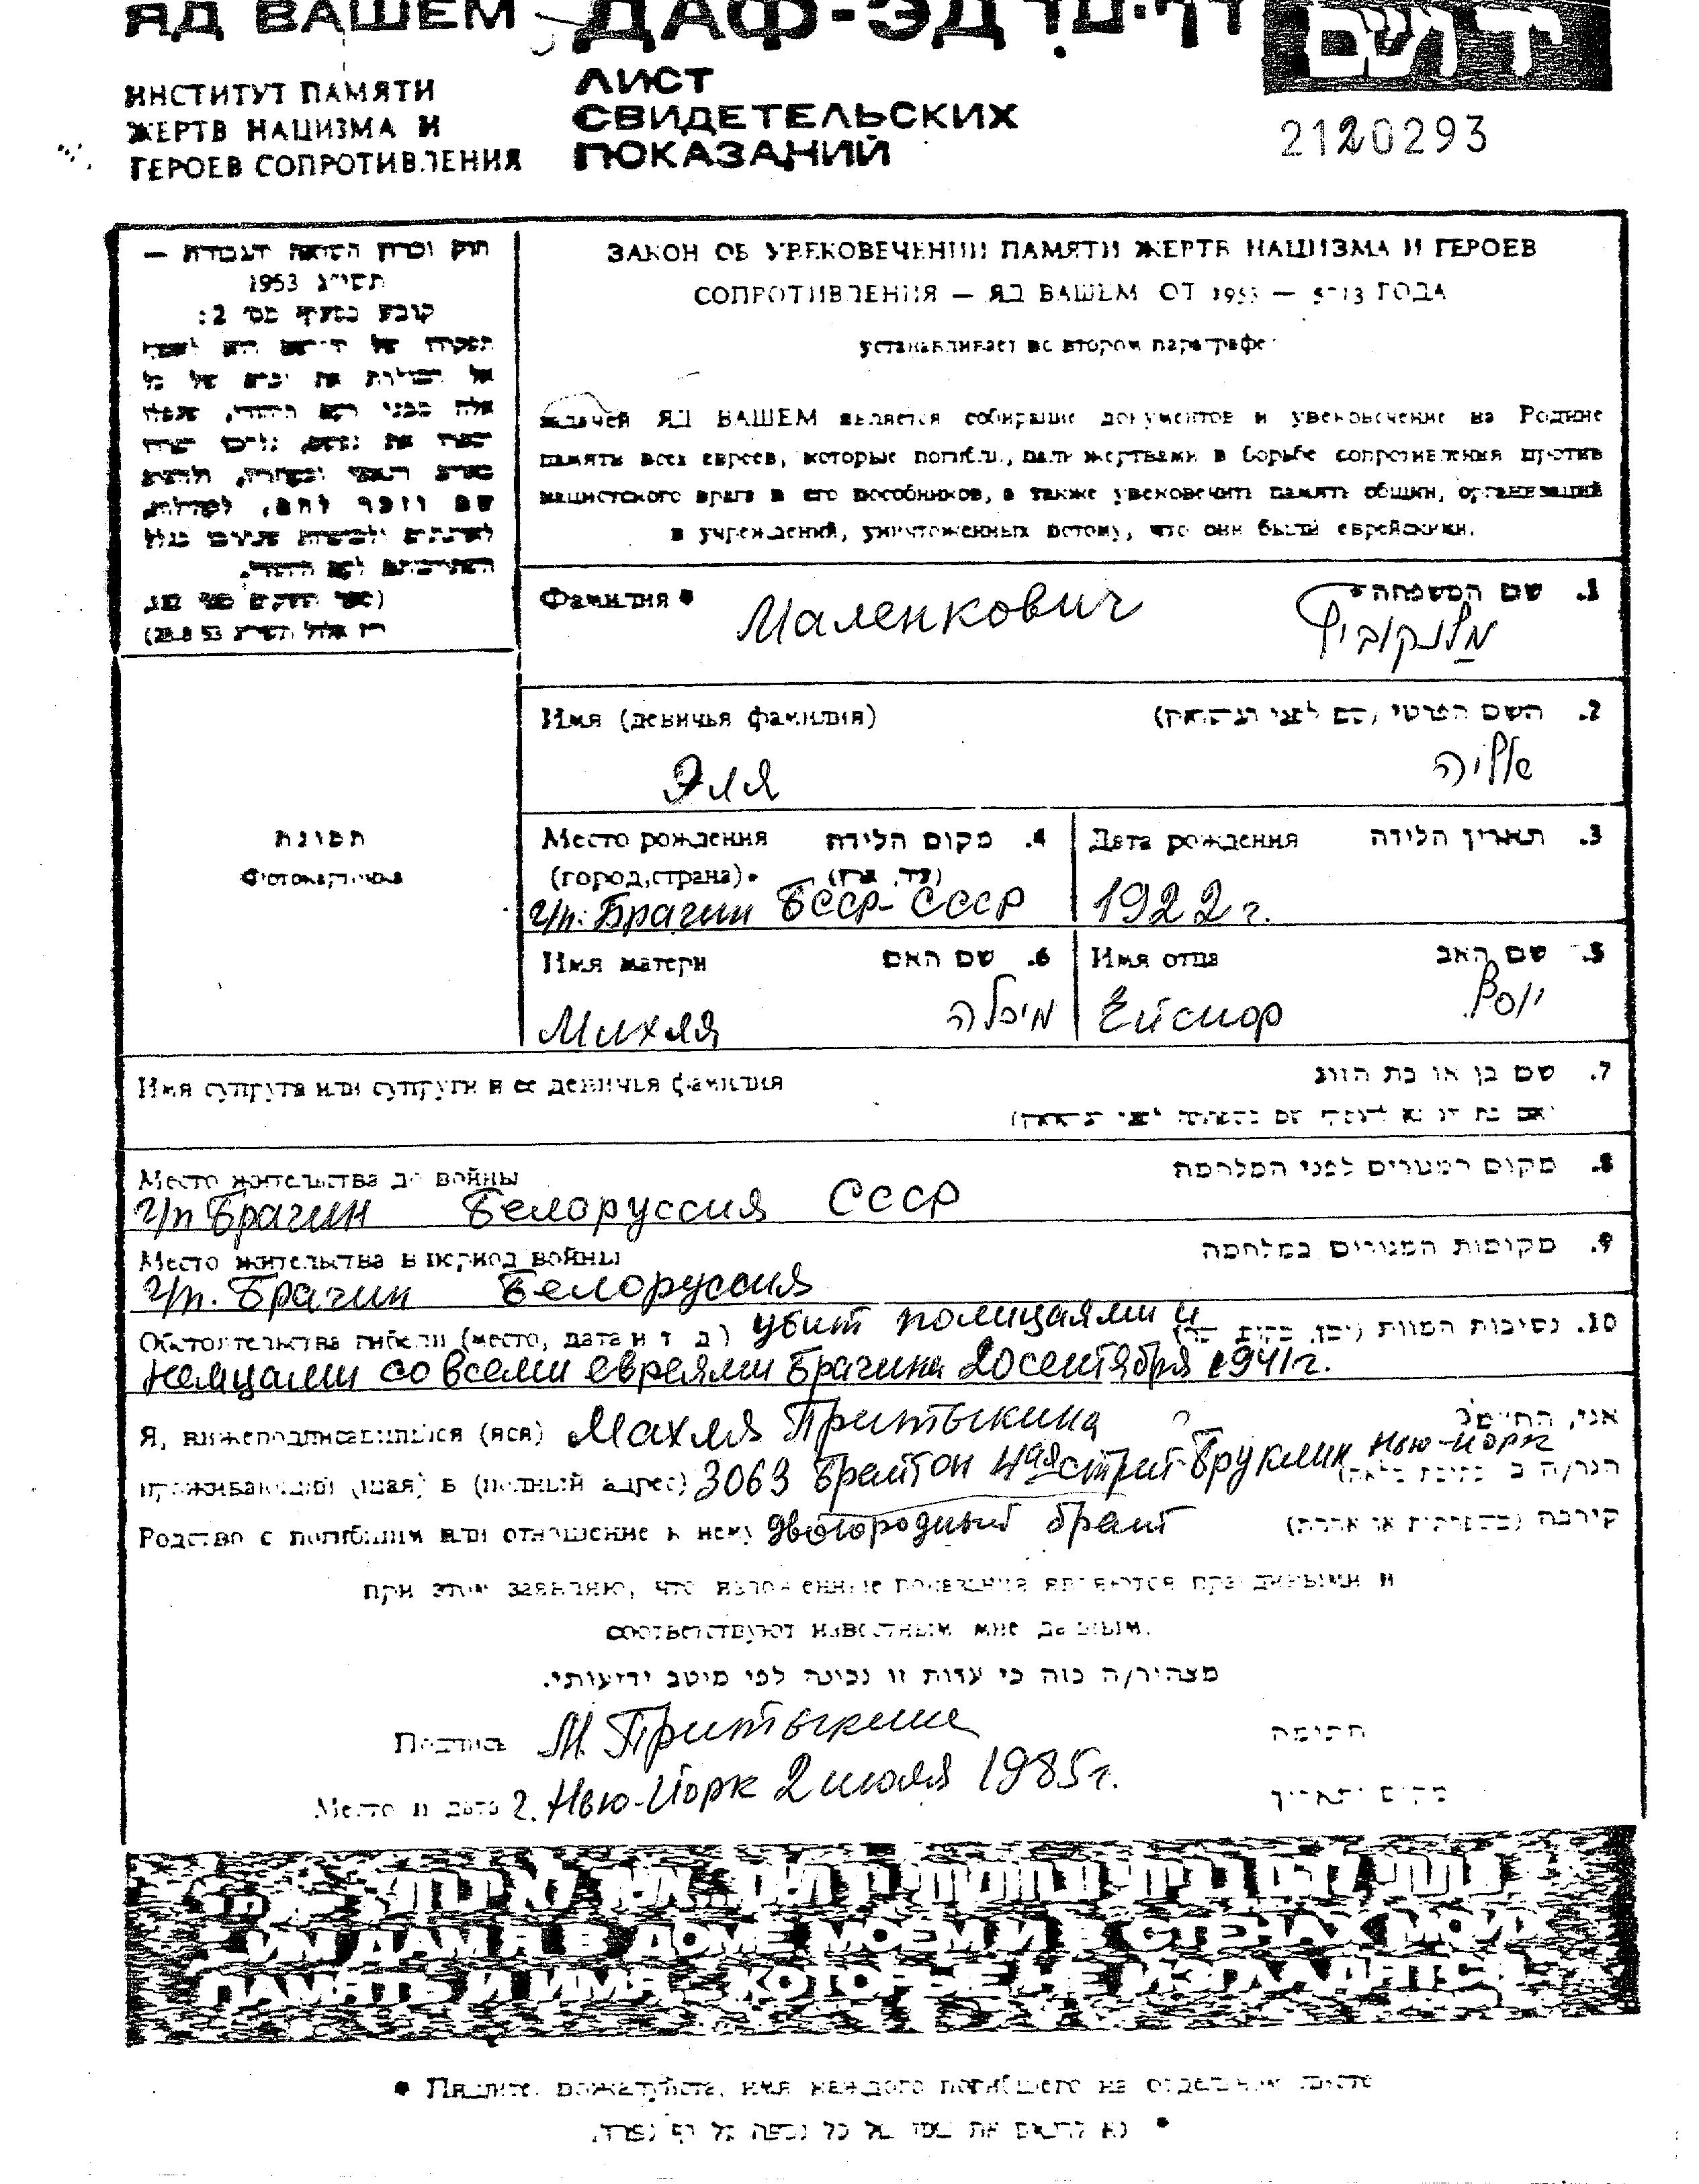 ЯД ВАШЕМ
ДАФ-ЭД דף-עד
יד ושם
ИНСТИТУТ ПАМЯТИ
ЖЕРТВ НАЦИЗМА И
ГЕРОЕВ СОПРОТИВЛЕНИЯ
ЛИСТ
СВИДЕТЕЛЬСКИХ
ПОКАЗАНИЙ
2120293
חוק זכרון השואה והגבורה —
תשי"ג 1953
קובע בסעיף מס' 2:
שם וזכר להם,
ЗАКОН ОБ УВЕКОВЕЧЕНИИ ПАМЯТИ ЖЕРТВ НАЦИЗМА И ГЕРОЕВ
СОПРОТИВЛЕНИЯ — ЯД ВАШЕМ ОТ 1953 — 5713 ГОДА
устанавливает во втором параграфе
задачей ЯД ВАШЕМ является собирание документов и увековечение на Родине
память всех евреев, которые погибли, пали жертвами в борьбе сопротивления против
нацистского врага и его пособников, а также увековечить память общин, организаций
и учреждений, уничтоженных потому, что они были еврейскими.
Фамилия * Маленкович
1. שם המשפחה*
מלנקוביץ
Имя (девичья фамилия)
2. השם הפרטי (שם לפני הנישואין)
Эля
אליה
תמונה
Фотокарточка
Место рождения 4. מקום הלידה
(город,страна)* (עיר, ארץ)
г/п. Брагин БССР-СССР
Дата рождения 3. תאריך הלידה
1922 г.
Имя матери 6. שם האם
Михля מיכלה
Имя отца 5. שם האב
Ейсиор יוסף
Имя супруга или супруги и ее девичья фамилия
7. שם בן או בת הזוג
Место жительства до войны
8. מקום המגורים לפני המלחמה
г/п Брагин Белоруссия СССР
Место жительства в период войны
9. מקומות המגורים במלחמה
г/п. Брагин Белоруссия
Обстоятельства гибели (место, дата и т д) убит полицаями и
10. נסיבות המוות (זמן, מקום וכו')
немцами со всеми евреями Брагина 20 сентября 1941 г.
Я, нижеподписавшийся (аяся) Махля Притыкина אני, החי"מ
проживающий (щая) в (полный адрес) 3063 Брайтон 4ая стрит Бруклин Нью-Йорк
Родство с погибшим или отношение к нему двоюродный брат
קירבה (משפחתית או אחרת)
при этом заявляю, что изложенные показания являются правдивыми и
соответствуют известным мне данным.
מצהיר/ה בזה כי עדות זו נכונה לפי מיטב ידיעותי.
Подпись М. Притыкина חתימה
Место и дата г. Нью-Йорк 2 июля 1985 г. מקום ותאריך
ИМ ДАМ Я В ДОМЕ МОЕМ И В СТЕНАХ МОИХ
ПАМЯТЬ И ИМЯ, КОТОРЫЕ НЕ ИЗГЛАДЯТСЯ
* Пишите, пожалуйста, имя каждого погибшего на отдельном листе